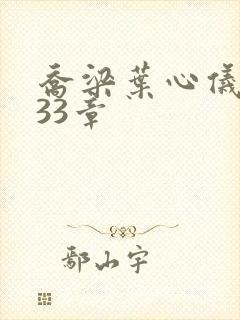 乔梁葉心儀
33章
鄢山宇